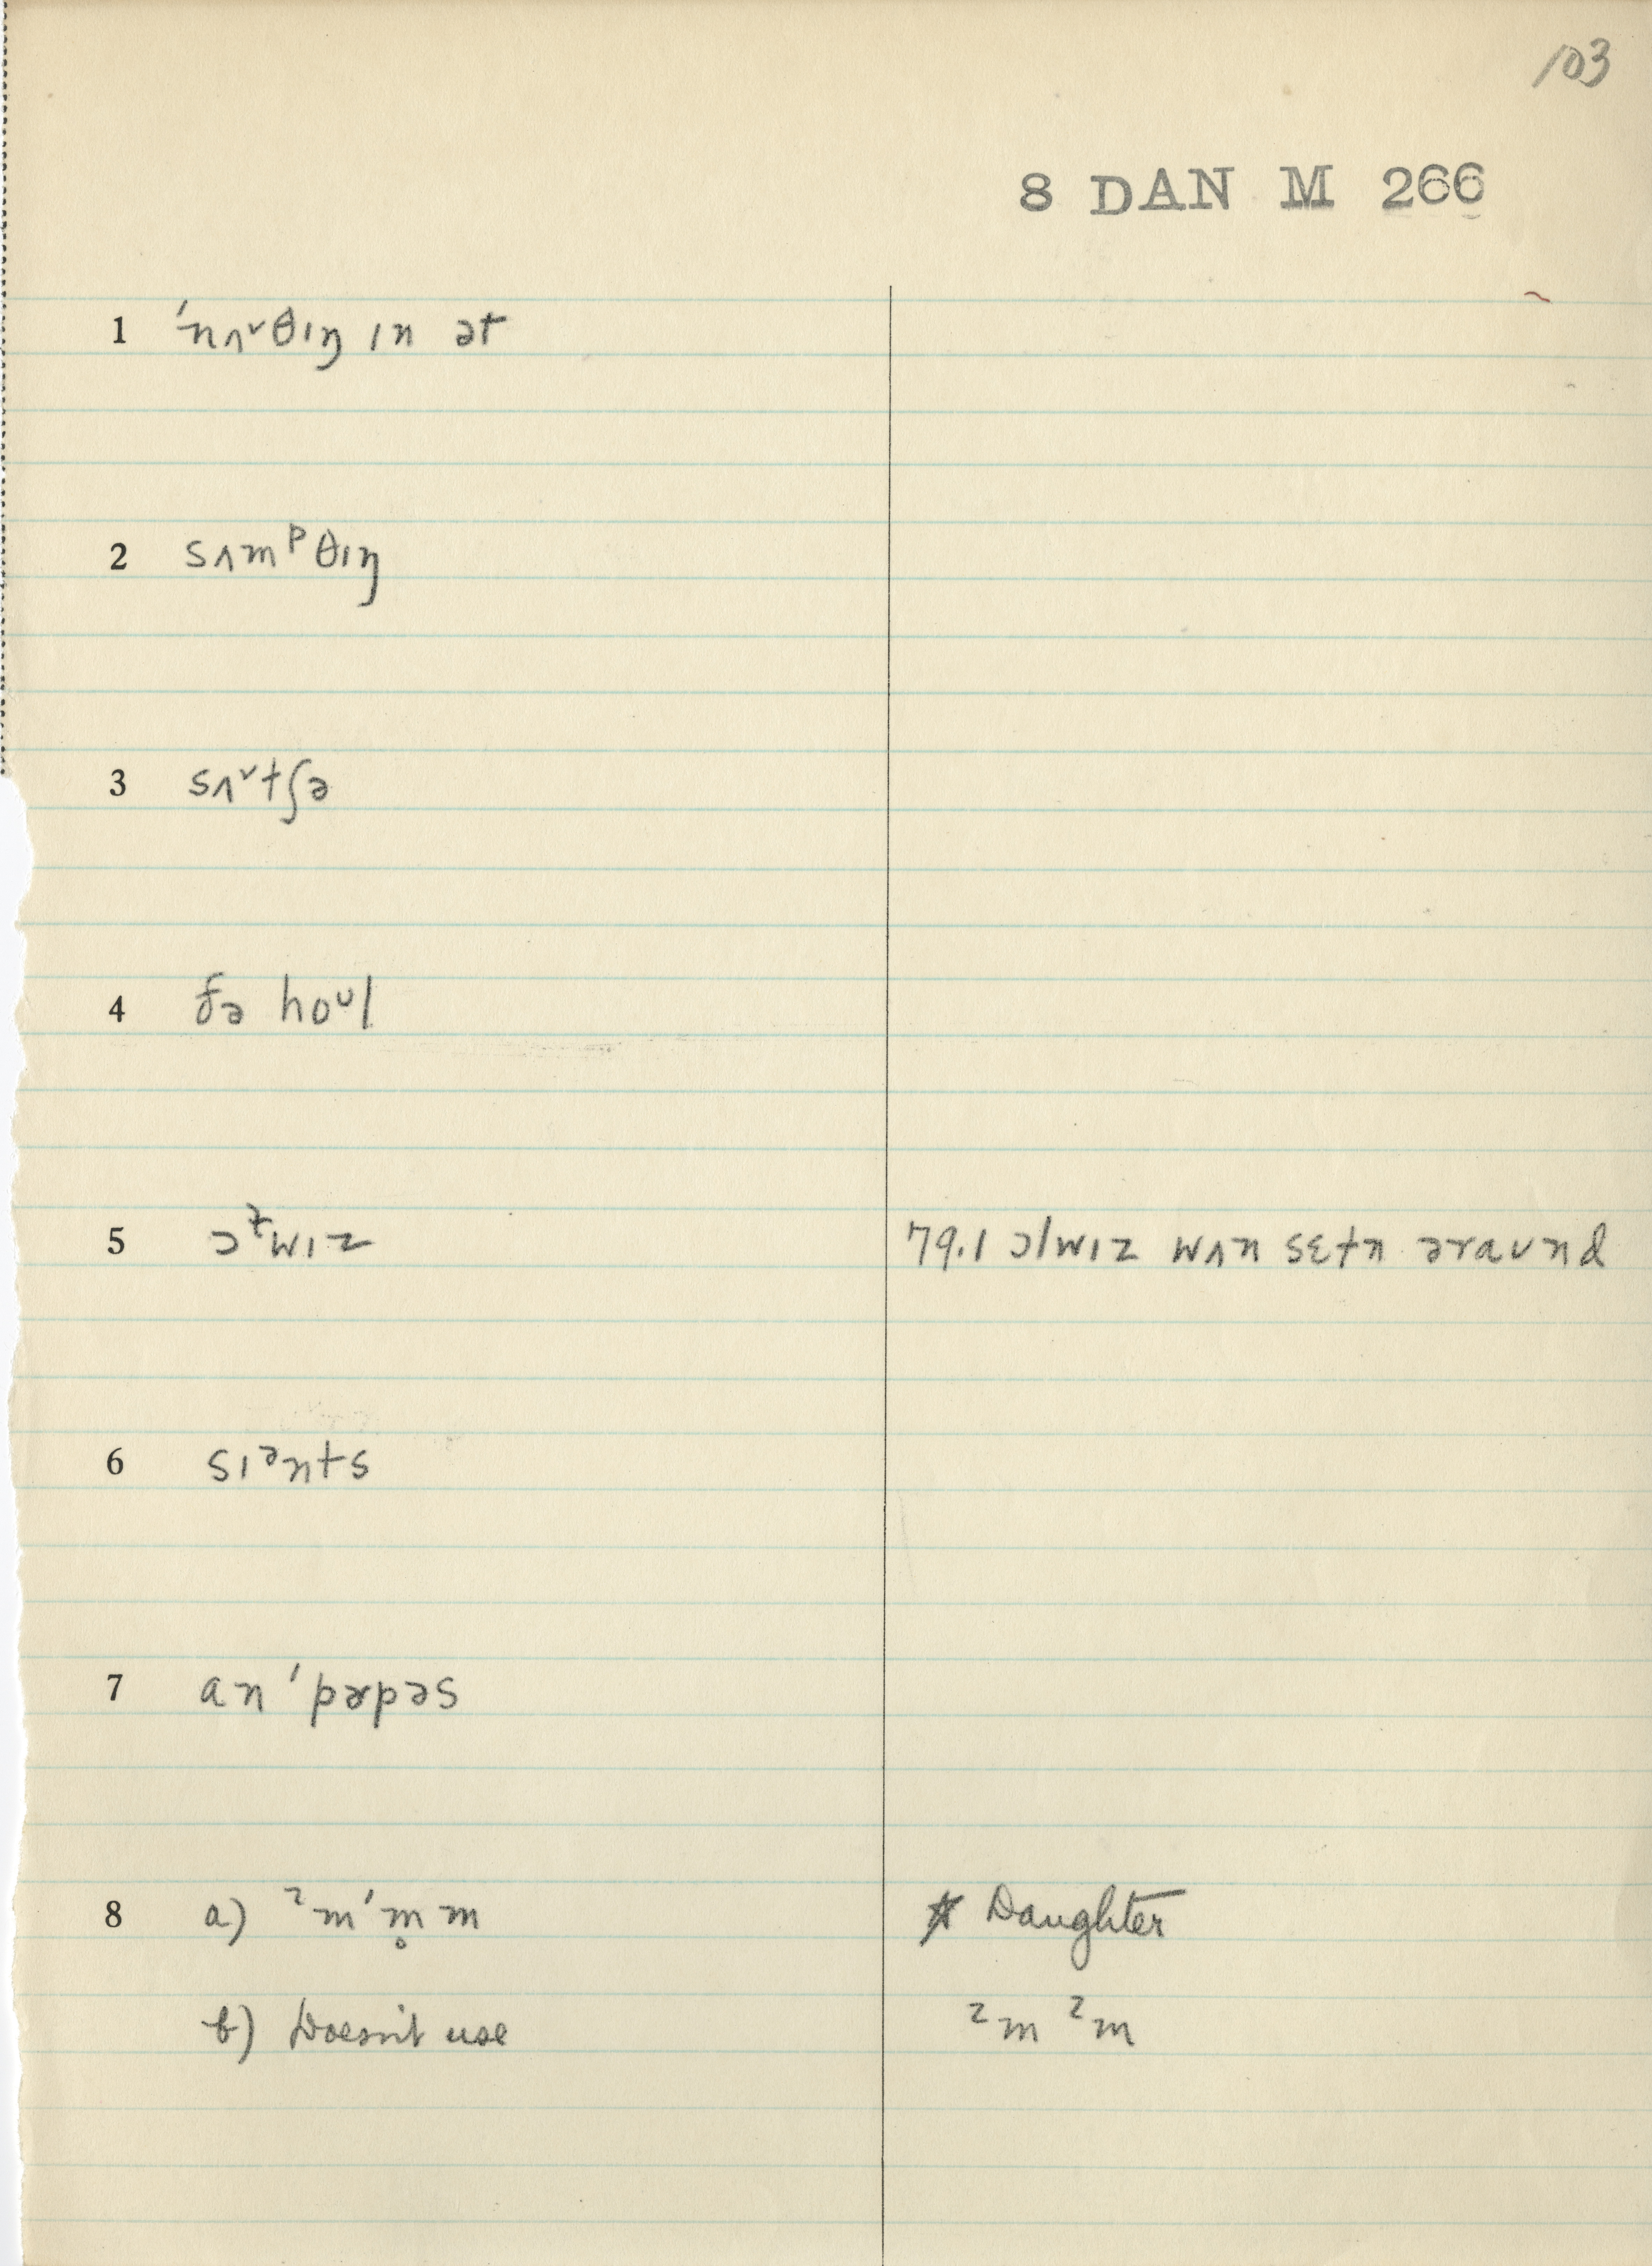 103
8 DAN M 266
1 ˈnʌ˅θɪŋ ɪn ət
2 sʌmᵖθɪŋ
3 sʌ˅tʃə
4 ðə hoᶷl
5 ɔɫwɪz 79.1 ɔlwɪz wʌn sɛtn əraʊnd
6 sɪᵊnts
7 an ˈpɚpəs
8 a) ˀmˈm̥m * Daughter
b) Doesn't use ˀm ˀm